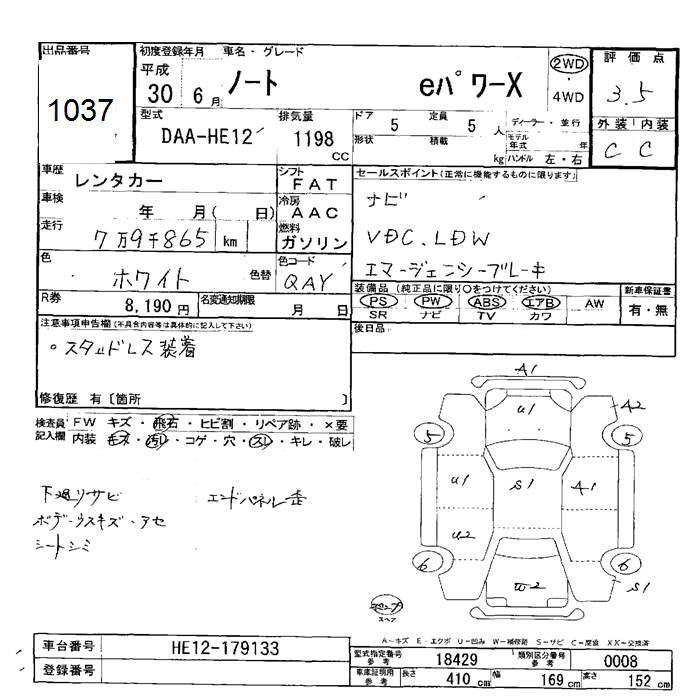 出品番号 初度登録年月 車名・グレード 評価点
1037 平成 30 6月 ノート eパワーX 2WD 4WD 3.5
型式 DAA-HE12 排気量 1198 CC
ドア 5 定員 5人 ディーラー・並行
形状 積載 kg モデル年式 年 ハンドル 左・右
外装 内装
C C
車歴 レンタカー シフト FAT
車検 年 月( 日) 冷房 AAC
走行 7万9千865 km 燃料 ガソリン
色 ホワイト 色替 色コード QAY
R券 8,190円 名変通知期限 月 日
セールスポイント(正常に機能するものに限ります)
ナビ
VDC、LDW
エマージェンシーブレーキ
装備品(純正品に限り○をつけてください) 新車保証書
PS PW ABS エアB AW 有・無
SR ナビ TV カワ
後日品
注意事項申告欄(不具合内容等は具体的に記入して下さい)
。スタッドレス装着
修復歴 有[箇所 ]
検査員記入欄 FW キズ・飛石・ヒビ割・リペア跡・×要
内装 キズ・汚レ・コゲ・穴・スレ・キレ・破レ
下廻リサビ エンドパネル歪
ボデーウスキズ・アセ
シートシミ
A1
U1 A2
5 5
U1 S1 A1
U2
6 6
W2 S1
スペア
A-キズ E-エクボ U-凹み W-補修跡 S-サビ C-腐食 XX-交換済
車台番号 HE12-179133
登録番号
型式指定番号 参考 18429 類別区分番号 参考 0008
車庫証明用 参考 長さ 410 cm 幅 169 cm 高さ 152 cm